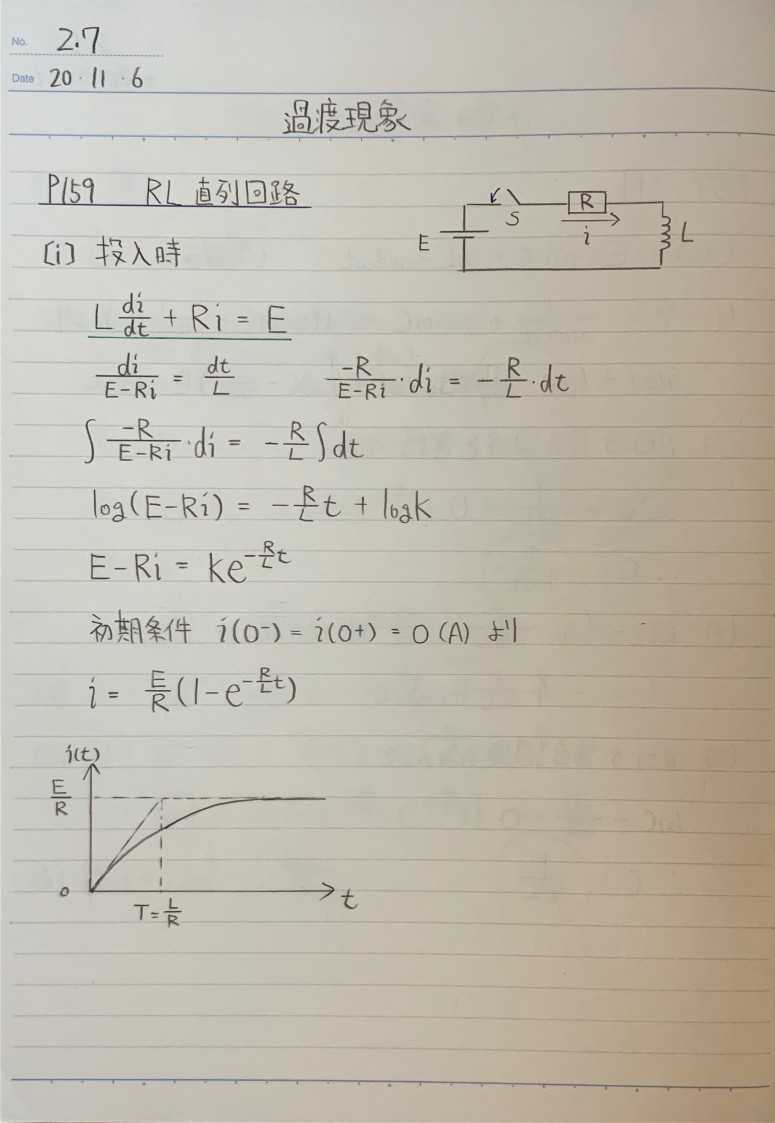 No. 2.7
Date 20・11・6
過渡現象
P159 RL 直列回路
E S R i L
〔i〕 投入時
L di/dt + Ri = E
di/(E-Ri) = dt/L   -R/(E-Ri)・di = -R/L・dt
∫ -R/(E-Ri)・di = -R/L ∫dt
log(E-Ri) = -R/L t + logk
E-Ri = ke^(-R/L t)
初期条件 i(0-) = i(0+) = 0 (A) より
i = E/R (1-e^(-R/L t))
i(t)
E/R
0
t
T=L/R